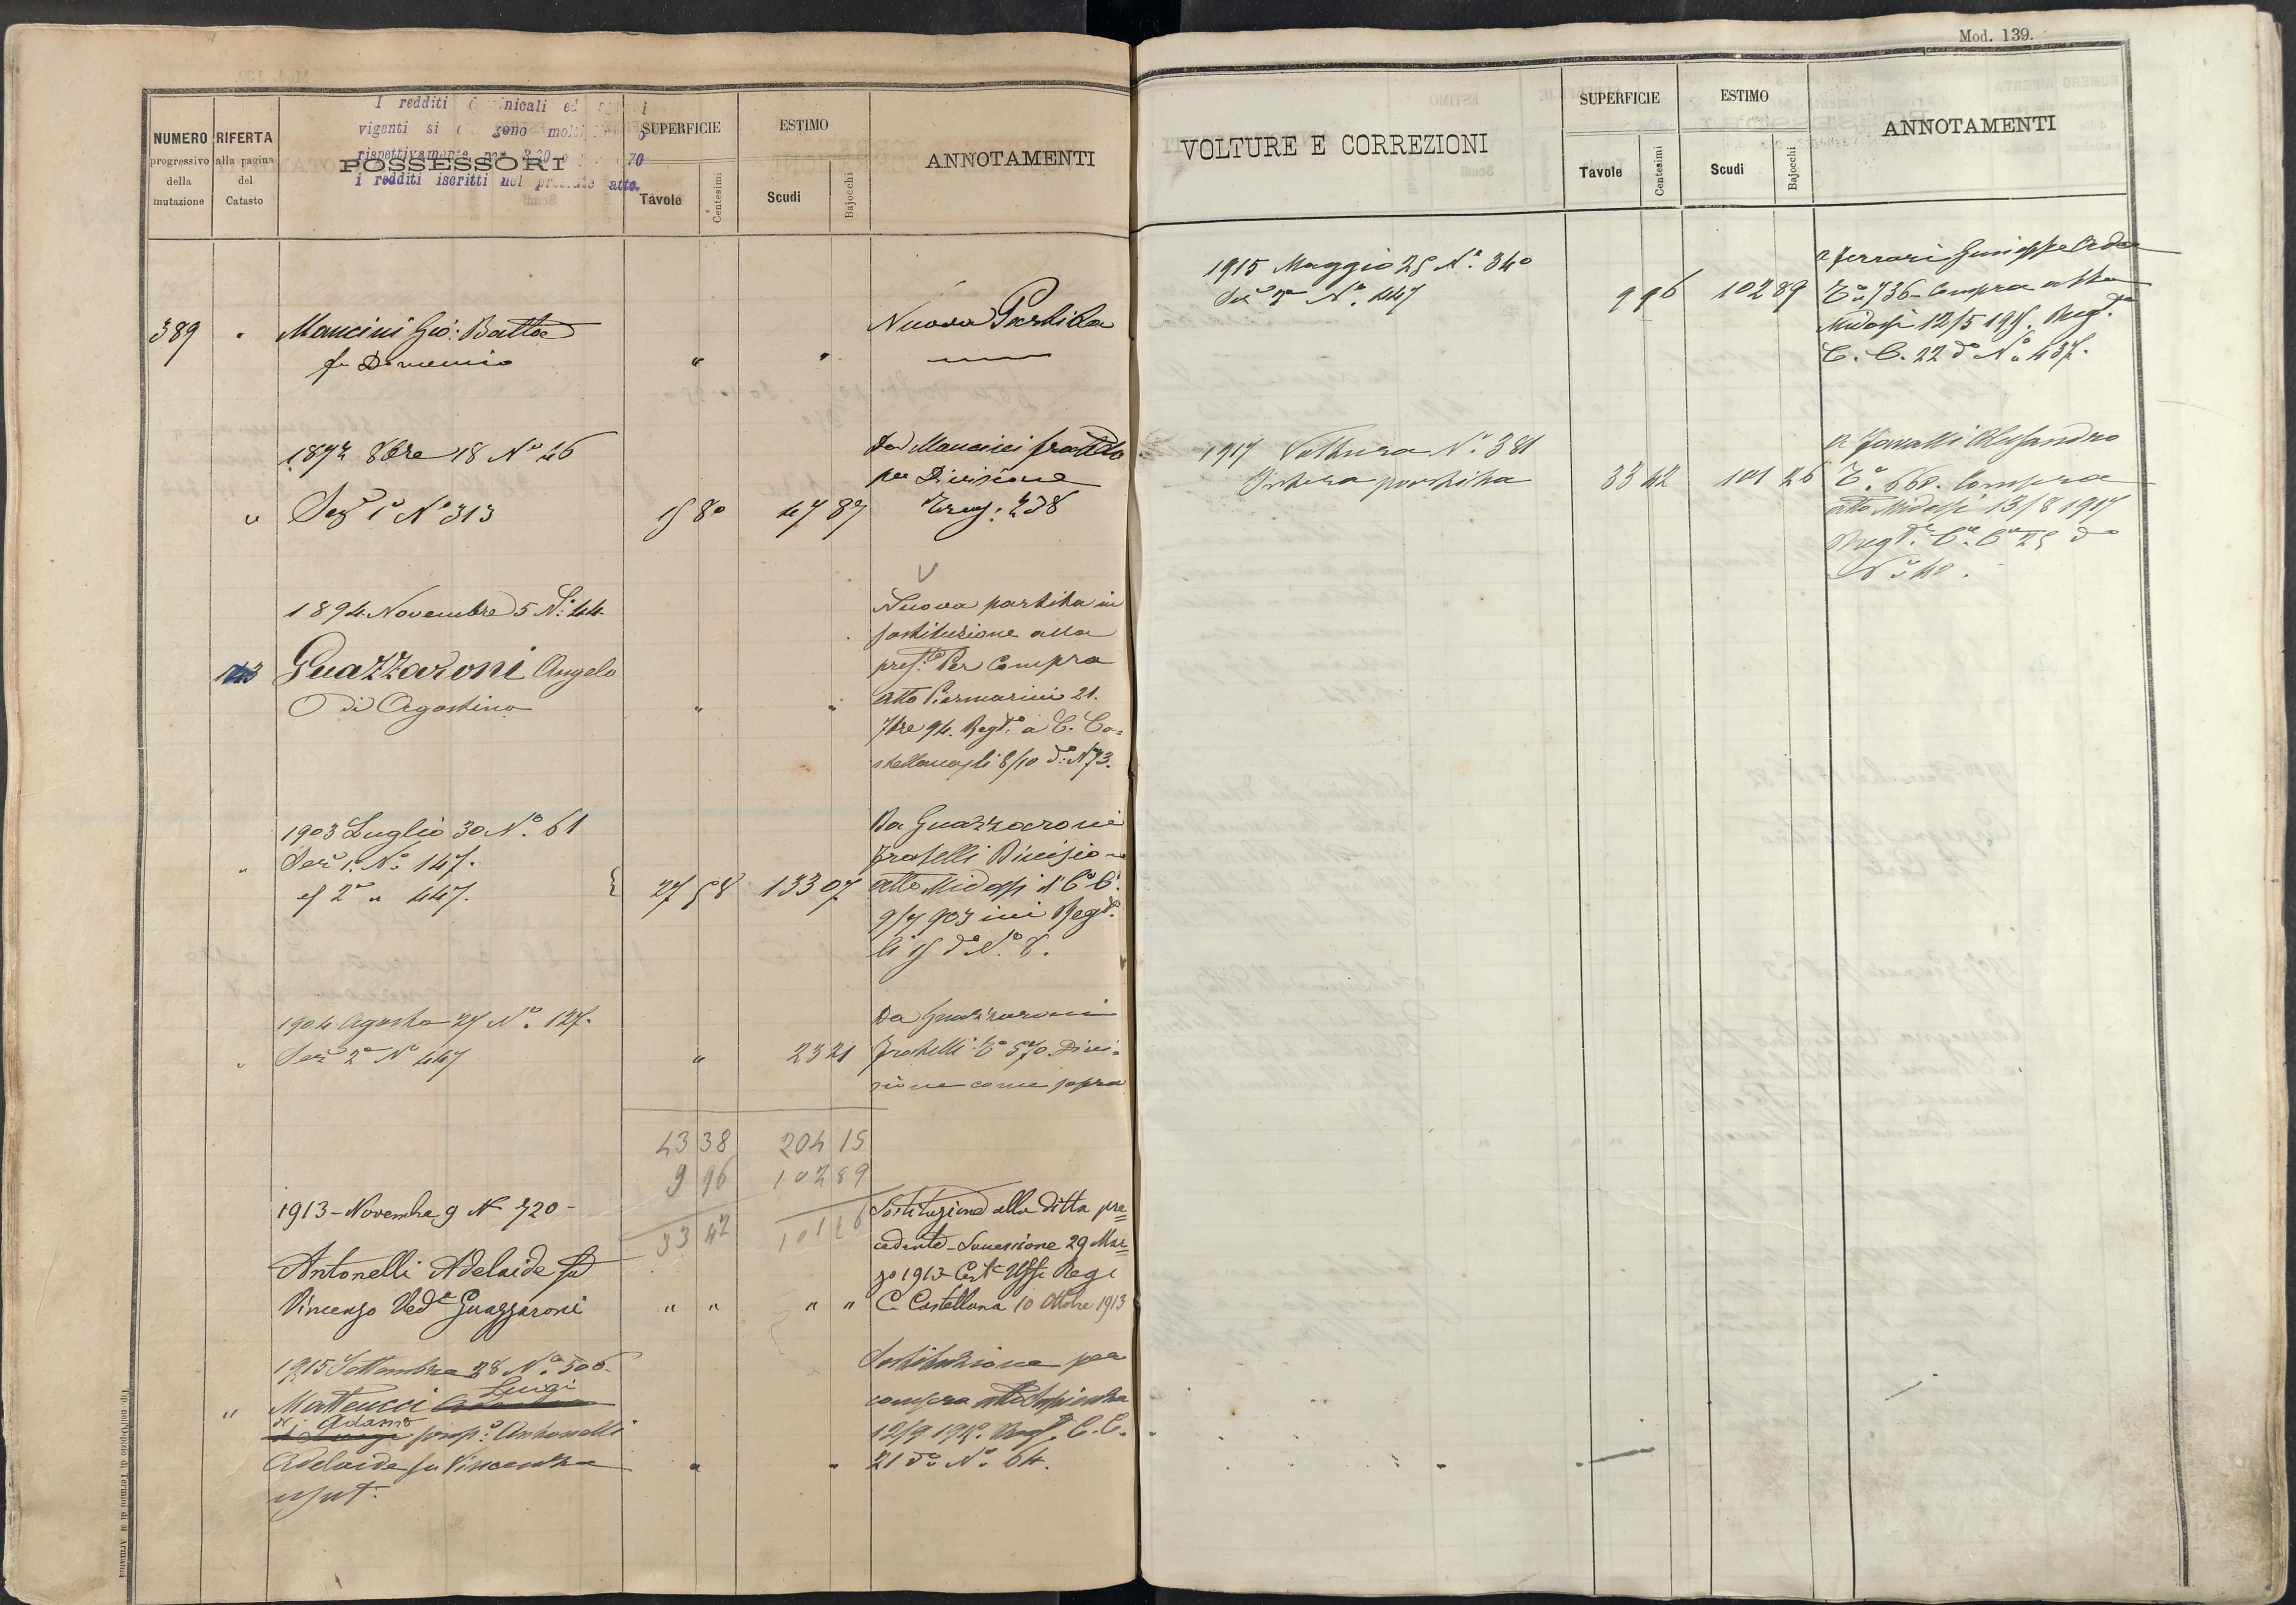 Mod. 139.
NUMERO
progressivo
della
mutazione
RIFERTA
alla pagina
del
Catasto
I redditi
nicali ed
vigenti si
gono
rispettivamente per
70
i redditi iscritti nel
atto.
POSSESSORI
SUPERFICIE
Tavole
Centesimi
ESTIMO
Scudi
Bajocchi
ANNOTAMENTI
389 Mancini Gio: Batta
fu Domenico " "
Nuova Partita
1892 8bre 18 Nº 46
" Sez 1ª Nº 313 15 80 47 87
Da Mancini fratello
per Divisione
238
1894 Novembre 5 Nº 44
Guazzaroni Angelo
di Agostino " "
Nuova partita in
sostituzione alla
Per Compra
atto Piermarini 21.
7bre 94. Regto a C. Ca=
stellana li 8/10 do Nº 73.
1903 Luglio 30 Nº 61
" Sez 1ª Nº 147.
2ª " 447. 27 58 133 07
Da Guazzaroni
fratelli Divisione
atto Midossi C. C.
9/7 903 ivi Regto
li 15 do Nº 8.
1904 Agosto 27 Nº 127.
" Sez 2ª Nº 447 " 23 21
Da Guazzaroni
fratelli Cº 570. Divi=
sione come sopra
43 38 204 15
9 96 102 89
33 42 101 26
1913 - Novembre 9 Nº 320 -
Antonelli Adelaide fu
Vincenzo Veda Guazzaroni " " " "
Sostituzione alla ditta pre=
cedente - Successione 29 Mar=
zo 1913 - Certo Uffo Regi
C. Castellana 10 Ottobre 1913
1915 Settembre 28 Nº 506
Luigi
" Matteucci
di Adamo
di Luigi propº Antonelli
Adelaide fu Vincenzo " "
usufº.
Sostituzione per
compra atto
12/9 1915. Regº C. C.
21 do Nº 64.
Tip. nell'Ospizio di Termini di
VOLTURE E CORREZIONI
SUPERFICIE
Tavole
Centesimi
ESTIMO
Scudi
Bajocchi
ANNOTAMENTI
1915 Maggio 25 Nº 340
Sez 2ª Nº 447 9 96 102 89
a Ferrari Giuseppe
Cº 736 - Compra atto
Midossi 12/5 1915. Regto
C. C. 22 do Nº 437.
1917 Voltura Nº 381
Intera partita 33 42 101 26
a Alessandro
Cº 660. Compra
atto Midossi 13/8 1917
Regto C. C. 25 do
Nº 40.